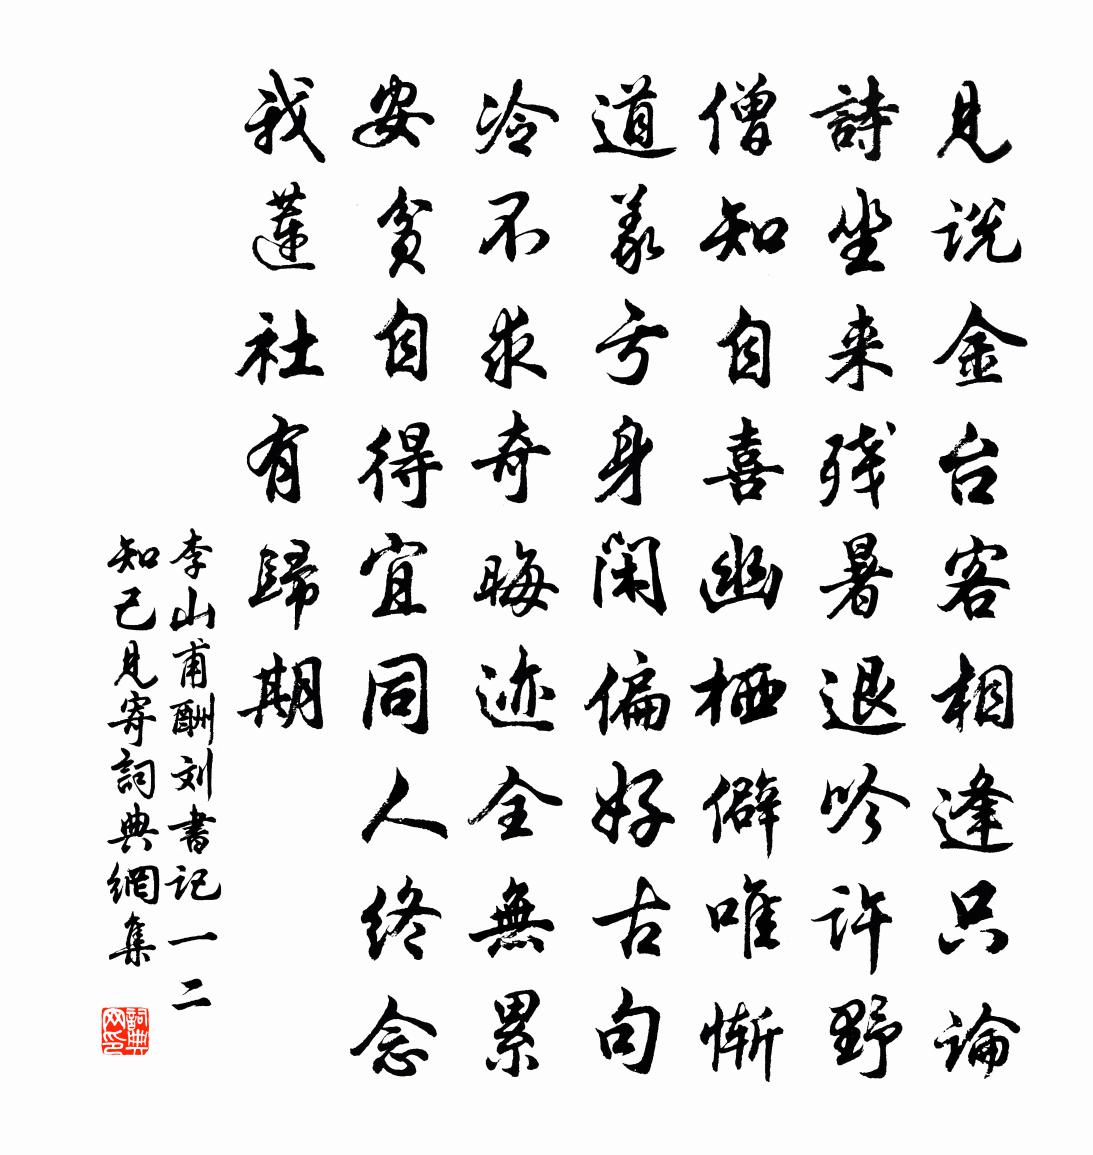 見说金台客相逢只論
詩坐来残暑退吟许野
僧知自喜幽栖僻唯惭
道義亏身闲偏好古句
冷不求奇晦迹全無累
安貧自得宜同人终念
我蓮社有歸期
李山甫酬刘書记一二
知己見寄詞典網集
詞典网印